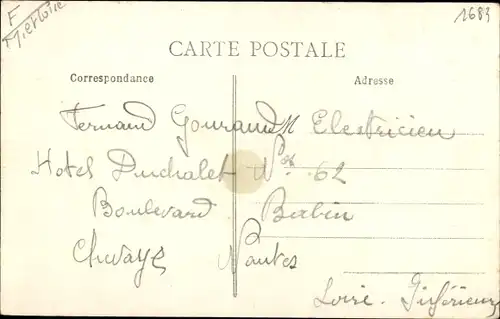 F
M. et Loire
2683
CARTE POSTALE
Correspondance
Adresse
Fernand Gouraud Electricien
Hotel Duchalet No 62
Boulevard Babin
Nantes
Loire. Inférieure